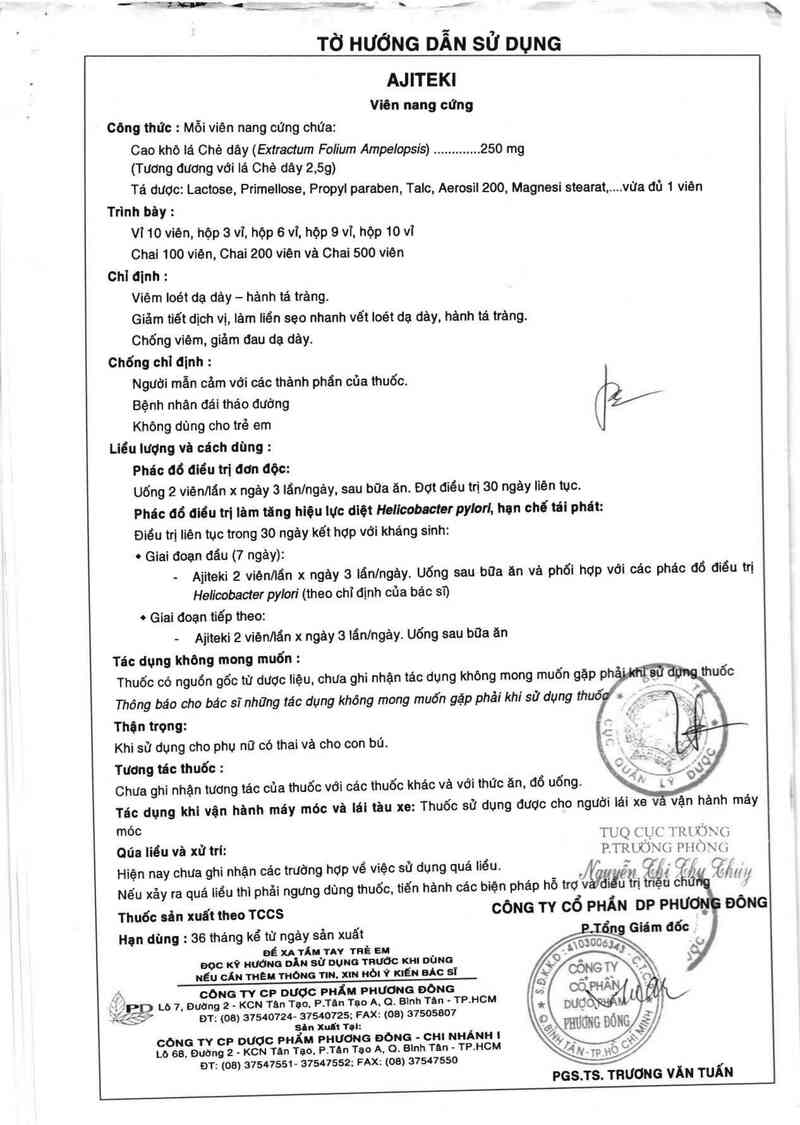 TỜ HƯỚNG DẪN SỬ DỤNG
AJITEKI
Viên nang cứng
Công thức : Mỗi viên nang cứng chứa:
Cao khô lá Chè dây (Extractum Folium Ampelopsis) .............250 mg
(Tương đương với lá Chè dây 2,5g)
Tá dược: Lactose, Primellose, Propyl paraben, Talc, Aerosil 200, Magnesi stearat,....vừa đủ 1 viên
Trình bày :
Vỉ 10 viên, hộp 3 vỉ, hộp 6 vỉ, hộp 9 vỉ, hộp 10 vỉ
Chai 100 viên, Chai 200 viên và Chai 500 viên
Chỉ định :
Viêm loét dạ dày – hành tá tràng.
Giảm tiết dịch vị, làm liền sẹo nhanh vết loét dạ dày, hành tá tràng.
Chống viêm, giảm đau dạ dày.
Chống chỉ định :
Người mẫn cảm với các thành phần của thuốc.
Bệnh nhân đái tháo đường
Không dùng cho trẻ em
Liều lượng và cách dùng :
Phác đồ điều trị đơn độc:
Uống 2 viên/lần x ngày 3 lần/ngày, sau bữa ăn. Đợt điều trị 30 ngày liên tục.
Phác đồ điều trị làm tăng hiệu lực diệt Helicobacter pylori, hạn chế tái phát:
Điều trị liên tục trong 30 ngày kết hợp với kháng sinh:
• Giai đoạn đầu (7 ngày):
- Ajiteki 2 viên/lần x ngày 3 lần/ngày. Uống sau bữa ăn và phối hợp với các phác đồ điều trị
Helicobacter pylori (theo chỉ định của bác sĩ)
• Giai đoạn tiếp theo:
- Ajiteki 2 viên/lần x ngày 3 lần/ngày. Uống sau bữa ăn
Tác dụng không mong muốn :
Thuốc có nguồn gốc từ dược liệu, chưa ghi nhận tác dụng không mong muốn gặp phải khi sử dụng thuốc
Thông báo cho bác sĩ những tác dụng không mong muốn gặp phải khi sử dụng thuốc
Thận trọng:
Khi sử dụng cho phụ nữ có thai và cho con bú.
Tương tác thuốc :
Chưa ghi nhận tương tác của thuốc với các thuốc khác và với thức ăn, đồ uống.
CỤC QUẢN LÝ DƯỢC
Tác dụng khi vận hành máy móc và lái tàu xe: Thuốc sử dụng được cho người lái xe và vận hành máy
móc
TUQ CỤC TRƯỞNG
P.TRƯỞNG PHÒNG
Nguyễn Thị Thu Thủy
Qúa liều và xử trí:
Hiện nay chưa ghi nhận các trường hợp về việc sử dụng quá liều.
Nếu xảy ra quá liều thì phải ngưng dùng thuốc, tiến hành các biện pháp hỗ trợ và điều trị triệu chứng
Thuốc sản xuất theo TCCS
CÔNG TY CỔ PHẦN DP PHƯƠNG ĐÔNG
P.Tổng Giám đốc
Hạn dùng : 36 tháng kể từ ngày sản xuất
ĐỂ XA TẦM TAY TRẺ EM
ĐỌC KỸ HƯỚNG DẪN SỬ DỤNG TRƯỚC KHI DÙNG
NẾU CẦN THÊM THÔNG TIN, XIN HỎI Ý KIẾN BÁC SĨ
PD
CÔNG TY CP DƯỢC PHẨM PHƯƠNG ĐÔNG
Lô 7, Đường 2 - KCN Tân Tạo, P.Tân Tạo A, Q. Bình Tân - TP.HCM
ĐT: (08) 37540724- 37540725; FAX: (08) 37505807
Sản Xuất Tại:
CÔNG TY CP DƯỢC PHẨM PHƯƠNG ĐÔNG - CHI NHÁNH I
Lô 68, Đường 2 - KCN Tân Tạo, P.Tân Tạo A, Q. Bình Tân - TP.HCM
ĐT: (08) 37547551- 37547552; FAX: (08) 37547550
CÔNG TY
CỔ PHẦN
DƯỢC PHẨM
PHƯƠNG ĐÔNG
Q. BÌNH TÂN - TP. HỒ CHÍ MINH
PGS.TS. TRƯƠNG VĂN TUẤN